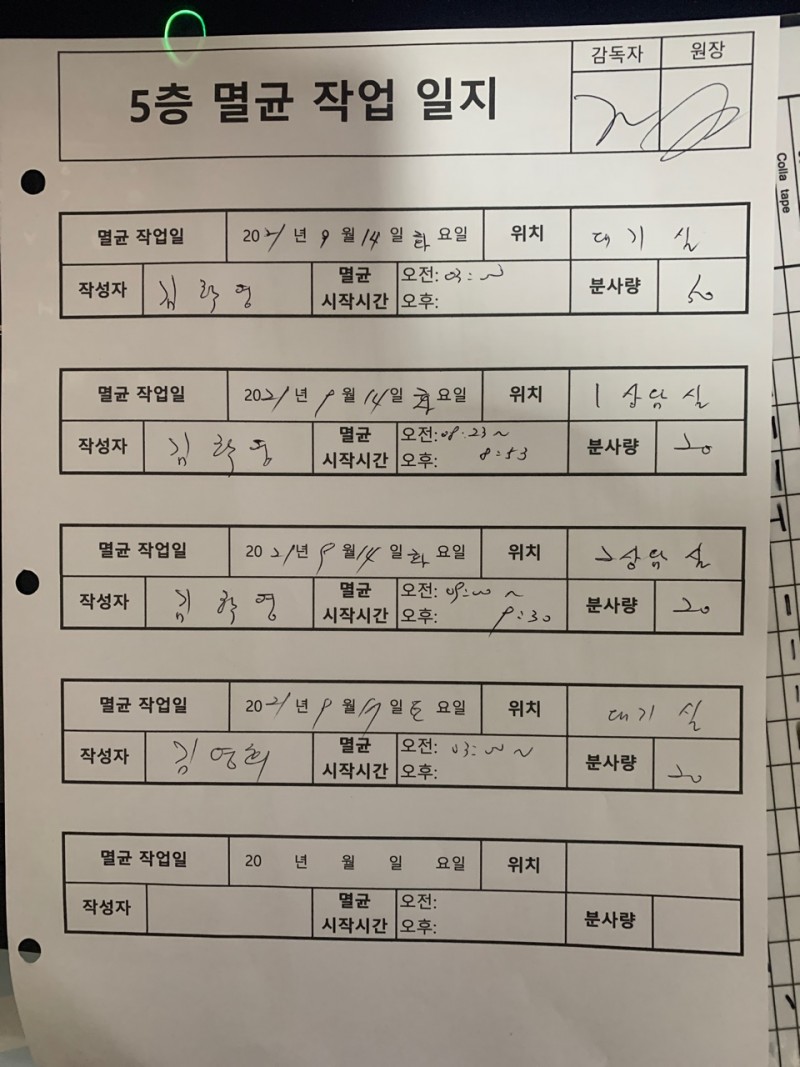 감독자 원장
5층 멸균 작업 일지
Colla tape
멸균 작업일 2021년 9월 14일 화요일 위치 대기실
작성자 김학영 멸균 시작시간 오전: 03:00 오후: 분사량
멸균 작업일 2021년 9월 14일 화요일 위치 1상담실
작성자 김학영 멸균 시작시간 오전: 08:23~ 오후: 8:53 분사량 20
멸균 작업일 2021년 9월 14일 화요일 위치 2상담실
작성자 김학영 멸균 시작시간 오전: 09:00~ 오후: 9:30 분사량 20
멸균 작업일 2021년 9월 일 토요일 위치 대기실
작성자 김영희 멸균 시작시간 오전: 03:00~ 오후: 분사량 20
멸균 작업일 20 년 월 일 요일 위치
작성자 멸균 시작시간 오전: 오후: 분사량